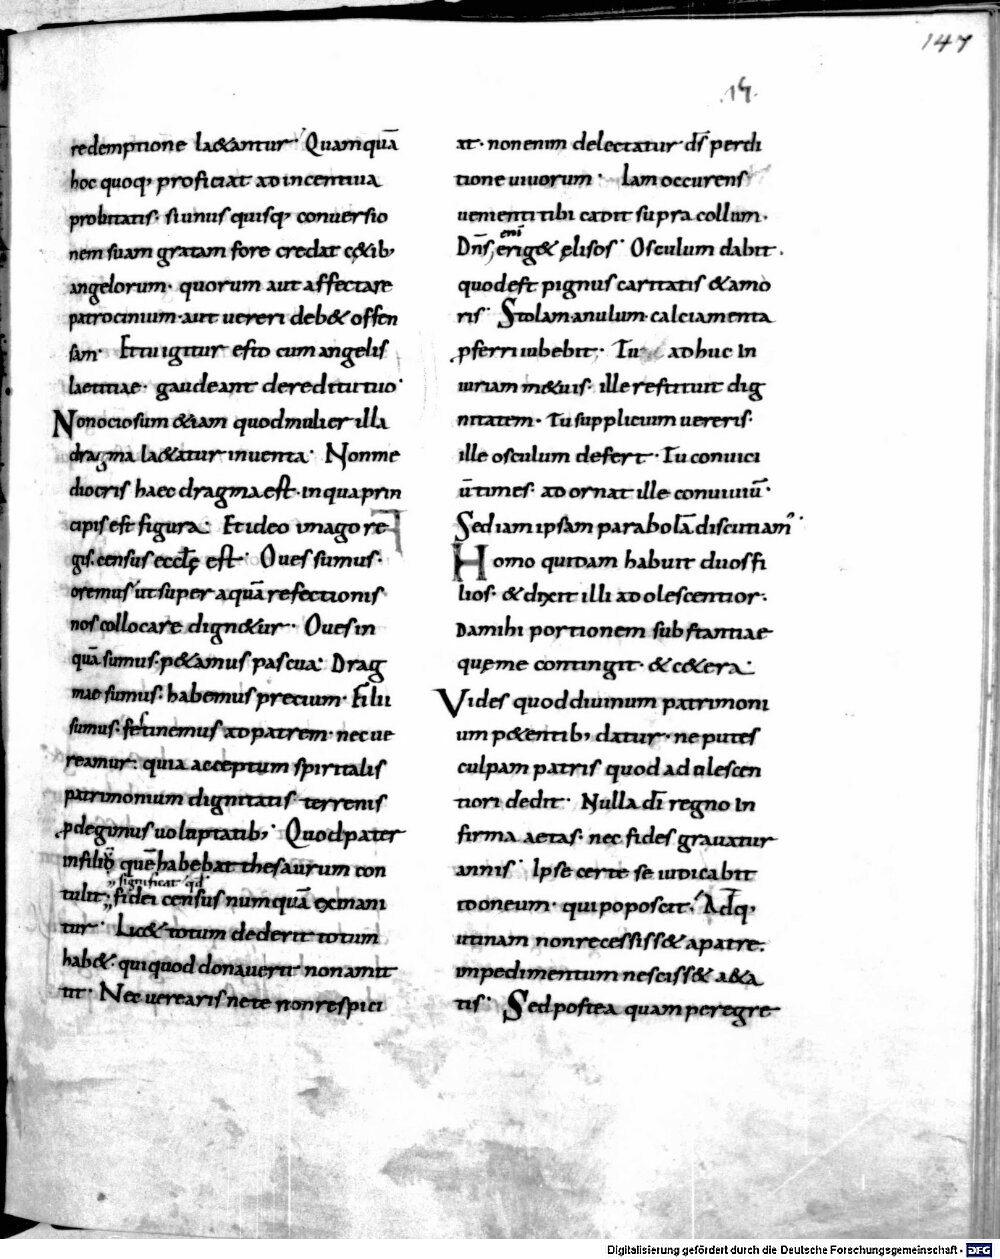 147
.19.
redemptione lae&antur· Quamquā
hoc quoq; proficiat ad incentiua
probitatis· si unus quisq; conuersio
nem suam gratam fore credat c&ib;
angelorum· quorum aut affectare
patrocinium· aut uereri deb& offen
sam· Et tu igitur esto cum angelis
laetitiae· gaudeant de reditu tuo·
Non ociosum &iam quod mulier illa
dragma la&atur inuenta· Non me
diocris haec dragma est· in qua prin
cipis est figura· Et ideo imago re
gis· census eccłę est· Oues sumus·
oremus ut super aquā refectionis
nos collocare dign&ur· Oues in
quā sumus· p&amus pascua· Drag
mae sumus· habemus precium· Filii
sumus· festinemus ad patrem· nec ue
reamur· quia acceptum spiritalis
patrimonium dignitatis terrenis
pdegimus uoluptatib; Quod pater
in filio quē habebat thesaurum con
significat qđ
tulit· fidei census numquā exinani
tur· Lic& totum dederit totum
hab&· qui quod donauerit non amit
tit· Nec uerearis ne te non respici
at· non enim delectatur dš perdi
tione uiuorum· Iam occurens
uenienti tibi cadit supra collum·
eni
Dn̄s erig& elisos· Osculum dabit·
quod est pignus caritatis & amo
ris· Stolam· anulum· calciamenta
pferri iubebit· Tu adhuc in
iuriam m&uis· ille restituit dig
nitatem· Tu supplicium uereris·
ille osculum defert· Tu conuici
ū times· adornat ille conuiuiū·
Sed iam ipsam parabolā discutiam'·
Homo quidam habuit duos fi
lios· & dixit illi adolescentior·
Da mihi portionem substantiae
quę me contingit· & c&era·
Vides quod diuinum patrimoni
um p&entib; datur· ne putes
culpam patris quod adulescen
tiori dedit· Nulla dī regno in
firma aetas· nec fides grauatur
annis· Ipse certe se iudicabit
idoneum· qui poposcit· Adq;
utinam non recessiss& a patre·
impedimentum nesciss& a&a
tis· Sed postea quam peregre
Digitalisierung gefördert durch die Deutsche Forschungsgemeinschaft - DFG